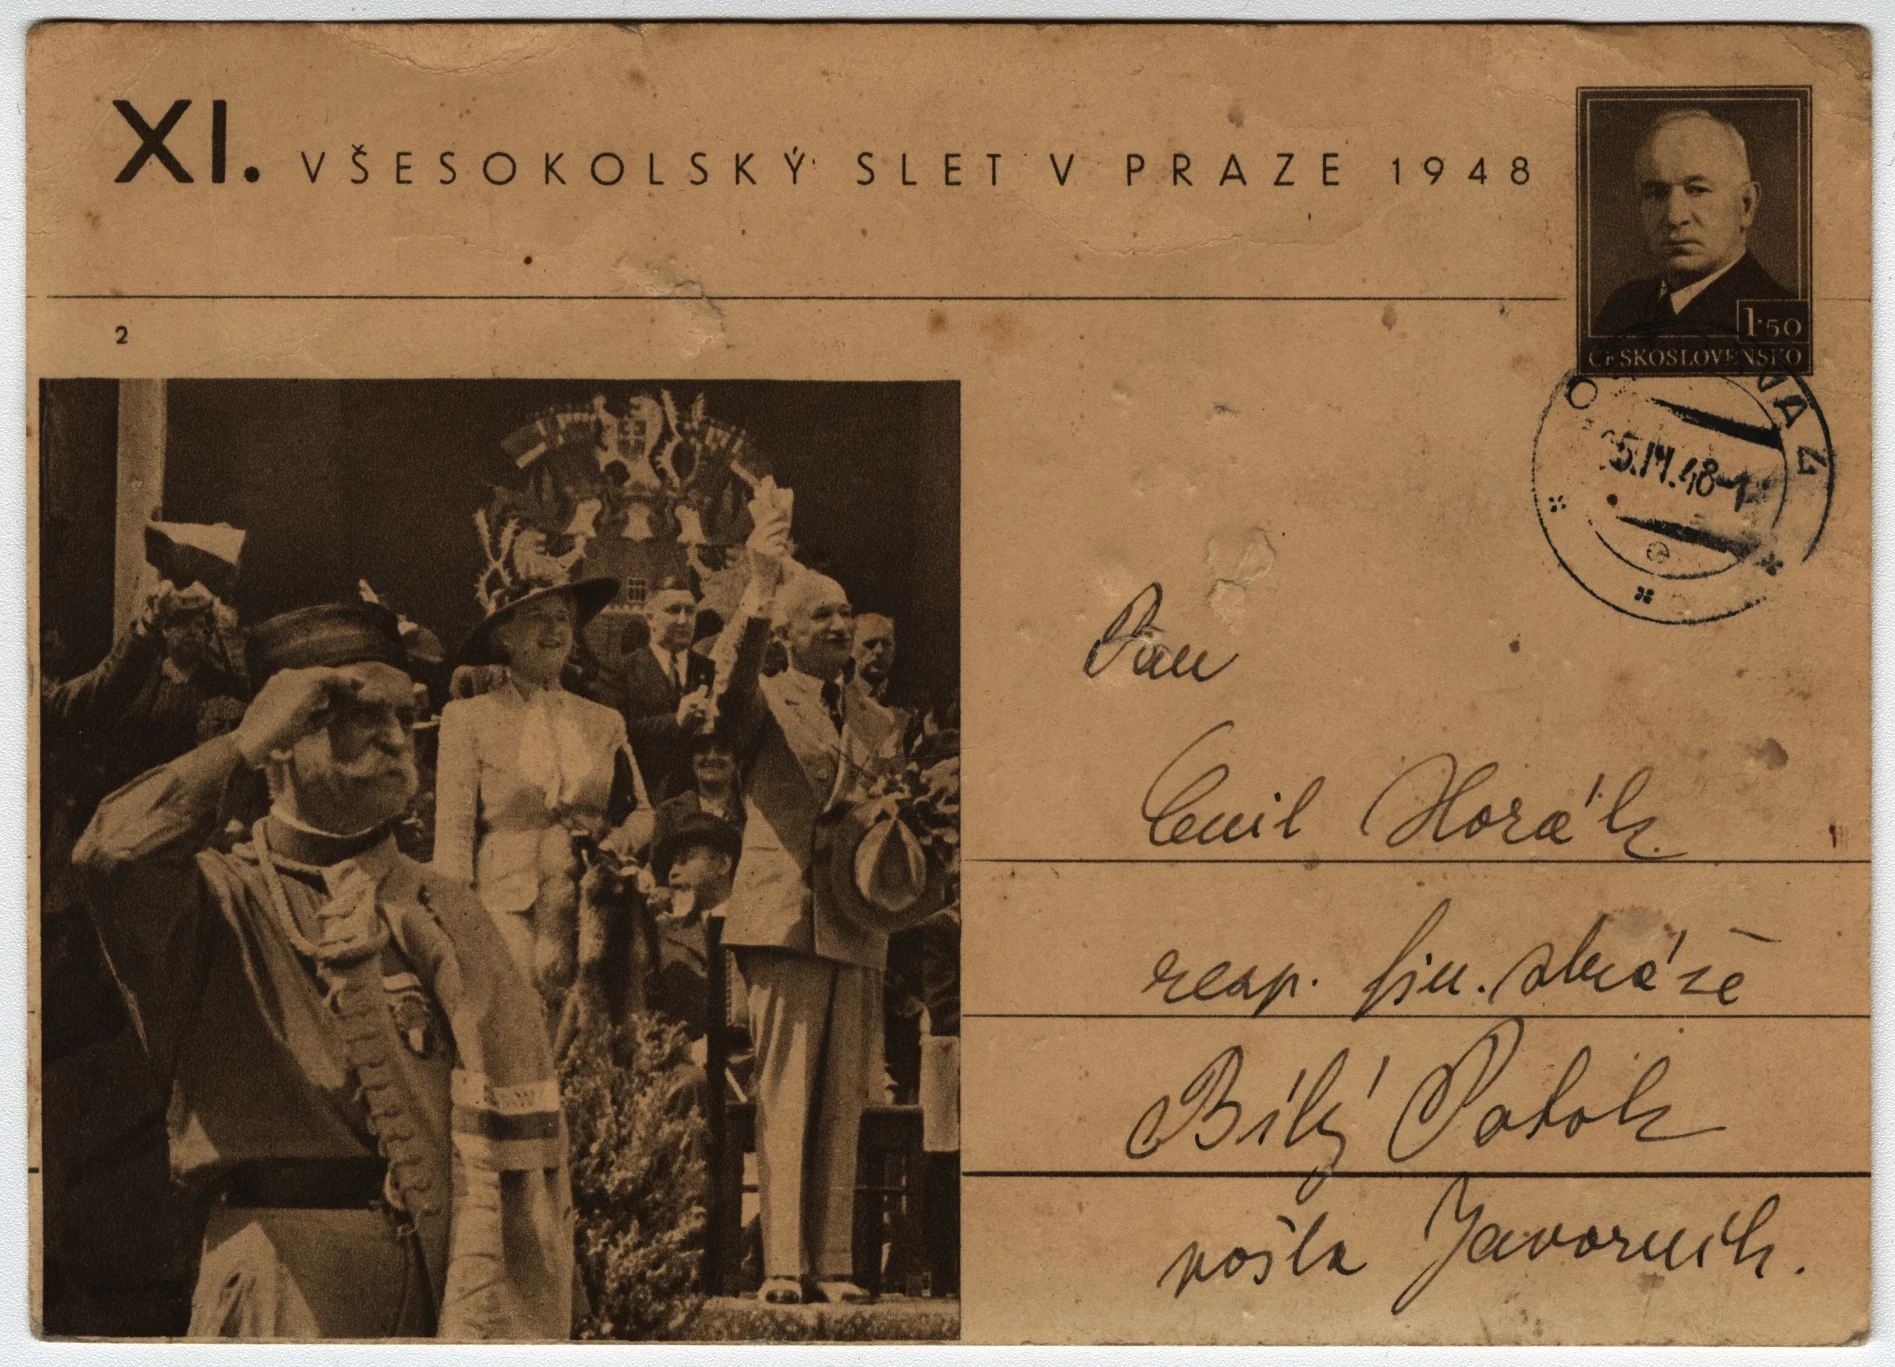 XI. VŠESOKOLSKÝ SLET V PRAZE 1948
2
1·50
ČESKOSLOVENSKO
VA 2
5.IV.48-1
Pan
Emil Horák
resp. fin. stráže
Bílý Potok
pošta Javorník.